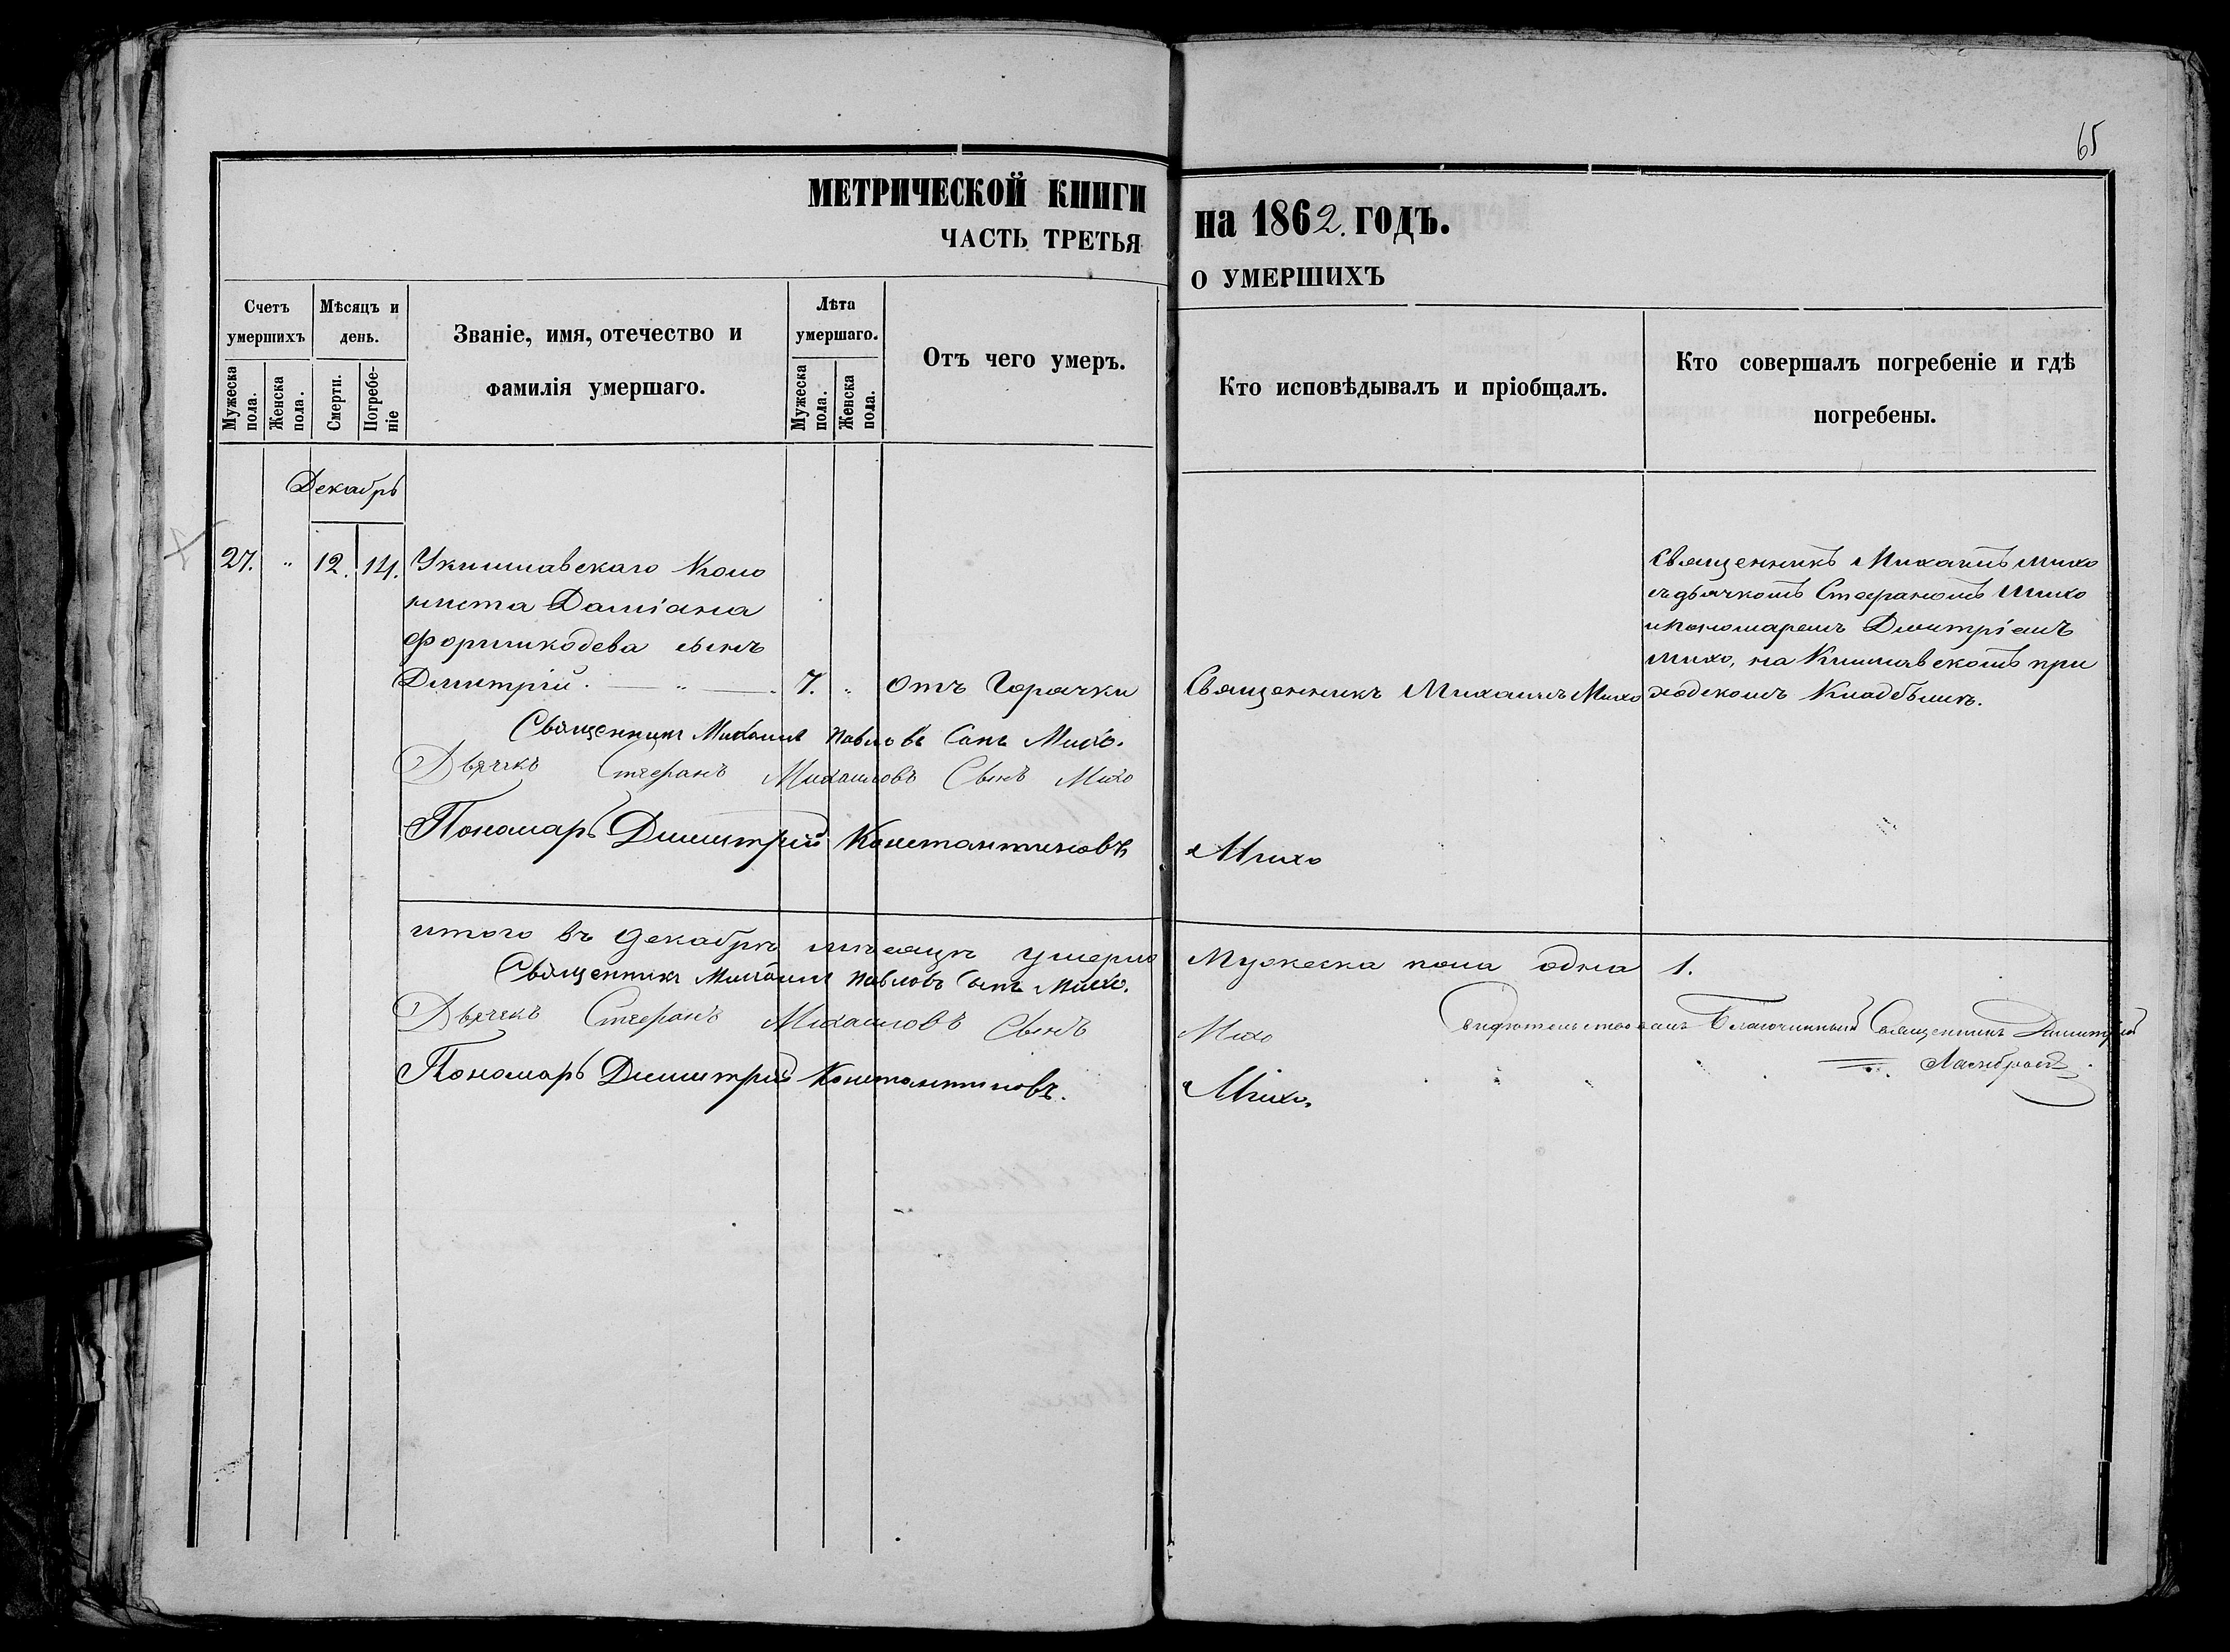 65
МЕТРИЧЕСКОЙ КНИГИ на 1862. ГОДЪ.
ЧАСТЬ ТРЕТЬЯ О УМЕРШИХЪ
Счетъ умершихъ
Мужеска пола.
Женска пола.
Мѣсяцъ и день.
Смерти.
Погребе-ніе
Званіе, имя, отечество и
фамилія умершаго.
Лѣта умершаго.
Мужеска пола.
Женска пола.
Отъ чего умеръ.
Кто исповѣдывалъ и пріобщалъ.
Кто совершалъ погребеніе и гдѣ
погребены.
Декабрь
27. " 12. 14.
Укишлавскаго Коло
ниста Даміана
сынъ
Димитрій. — " — 7. " Отъ Горячки
Священникъ Михаилъ Михо
Священникъ Михаилъ Михо
съ дьячкомъ Стефаномъ Михо
и Пономаремъ Димитріемъ
Михо, на при
ходскомъ Кладбѣщѣ.
Священникъ Михаилъ Павловъ Сынъ Михо.
Дьячекъ Стефанъ Михаиловъ Сынъ Михо
Пономарь Димитрій Константиновъ Михо
итого въ декабрѣ мѣсяцѣ умерло Мужеска пола одна 1.
Священникъ Михаилъ Павловъ Сынъ Михо.
Дьячекъ Стефанъ Михаиловъ Сынъ Михо
Свидѣтельствовалъ Благочинный Священникъ Димитрій
Пономарь Димитрій Константиновъ. Михо.